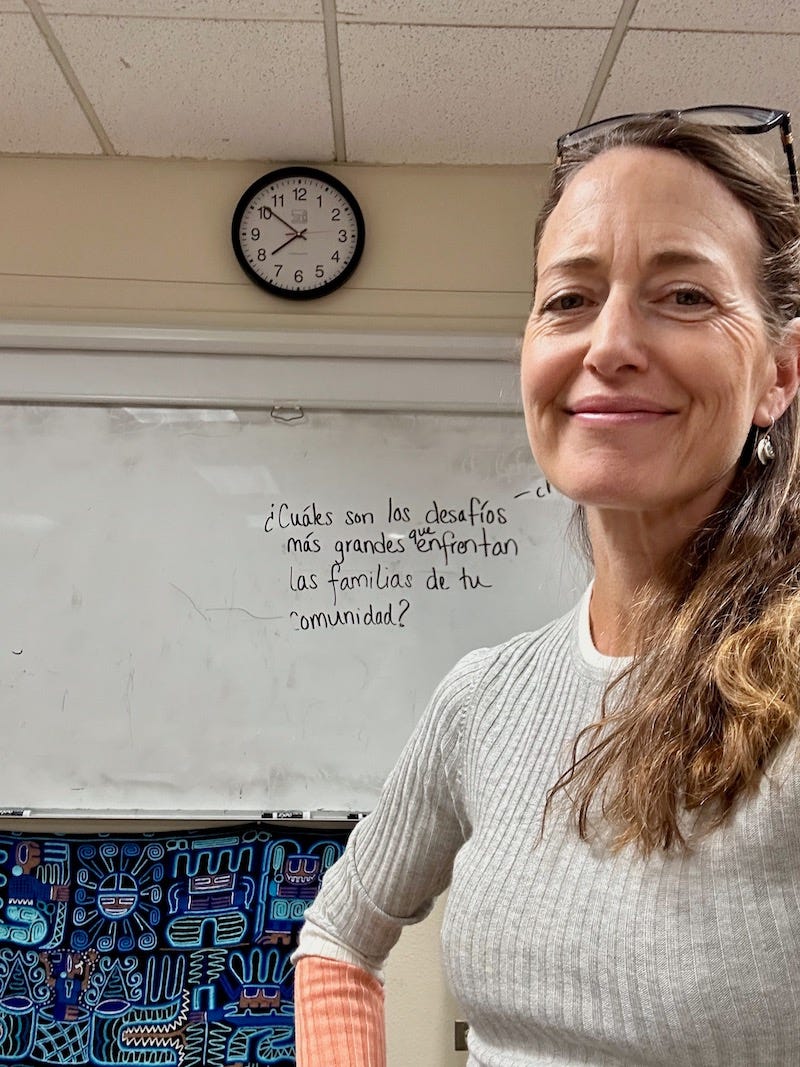 12
11
1
10
2
9
3
8
4
7
5
6
¿Cuáles son los desafíos
más grandes que enfrentan
las familias de tu
comunidad?